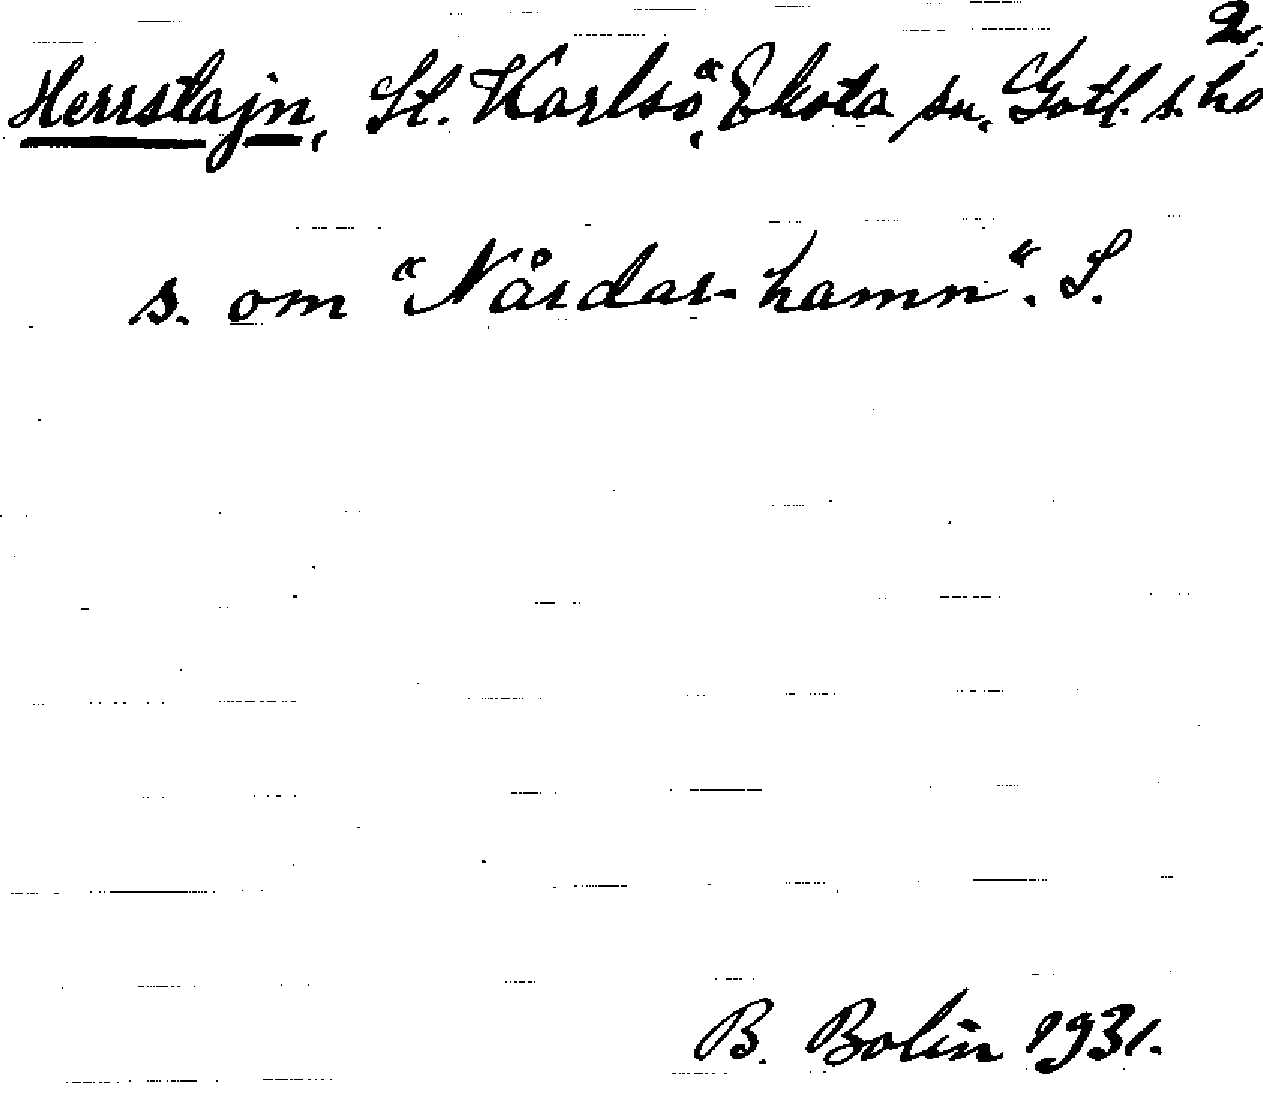 2.
Herrstajn, St. Karlsö, Eksta sn, Gotl. s. hd
s. om "Nårdar-hamn". S.
B. Bolin 1931.